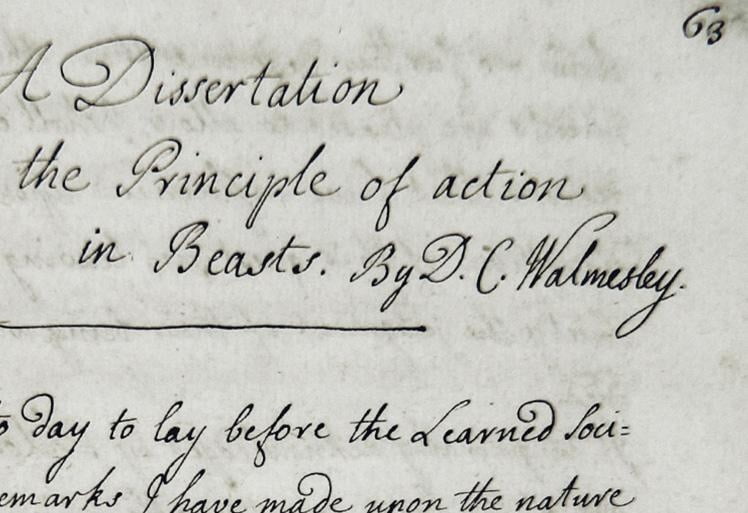 63
A Dissertation
the Principle of action
in Beasts. By D. C. Walmesley.
to day to lay before the Learned Soci=
emarks I have made upon the nature